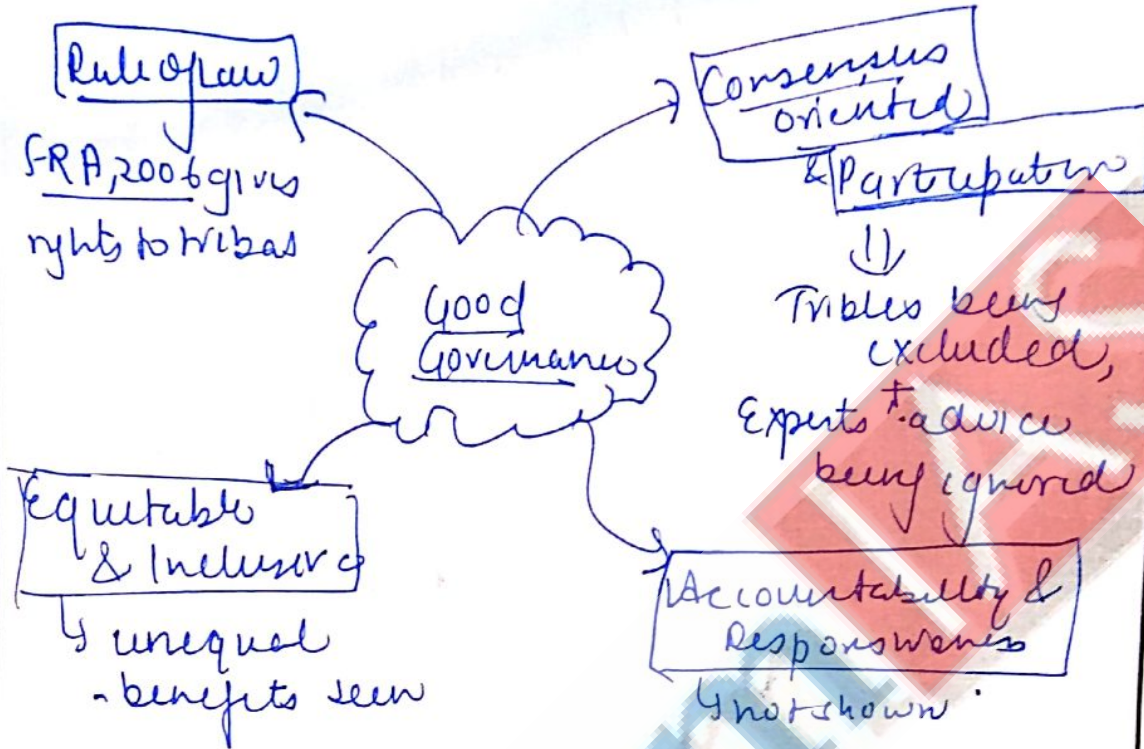 Rule of law
FRA, 2006 gives
rights to tribas
Consensus
oriented
& Participation
Tribles being
excluded,
+
Experts advice
being ignored
Good
Governance
Equitable
& Inclusive
unequal
- benefits seen
Accountability &
Responsiveness
not shown
IAS
m